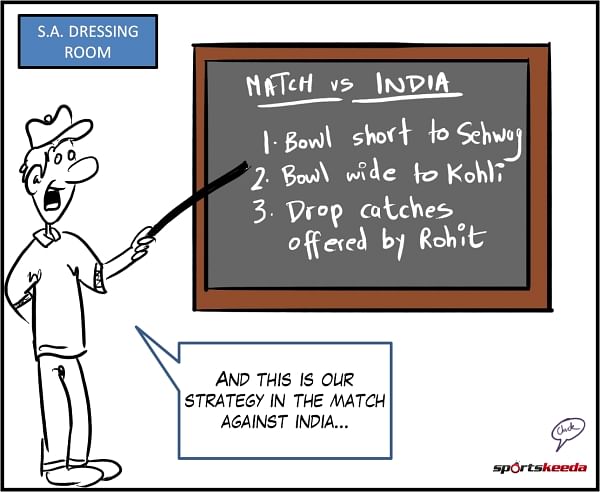 S.A. DRESSING
ROOM
MATCH VS INDIA
1. Bowl short to Sehwag
2. Bowl wide to Kohli
3. Drop catches
offered by Rohit
AND THIS IS OUR
STRATEGY IN THE MATCH
AGAINST INDIA...
sportskeeda